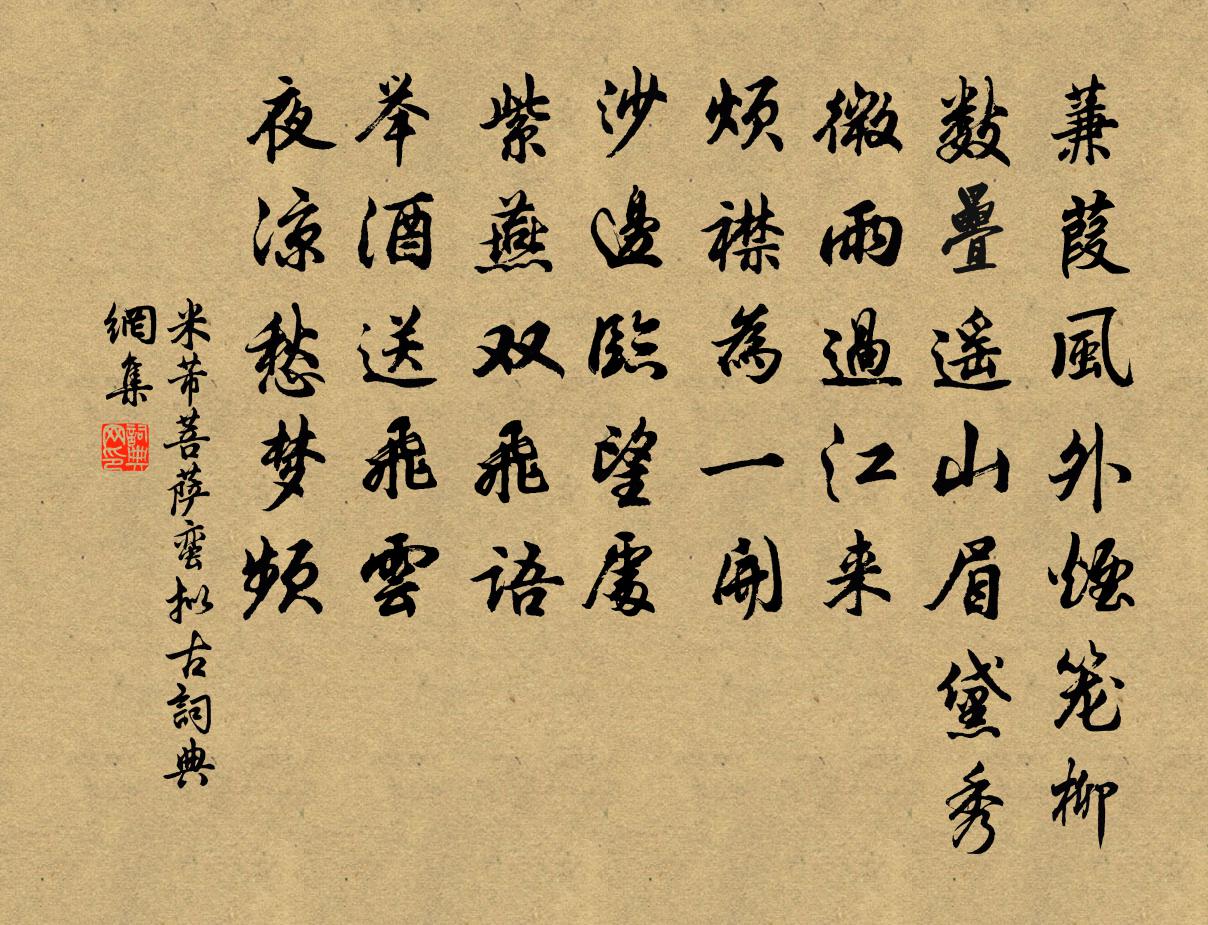 蒹葭風外煙笼柳
数疊遥山眉黛秀
微雨過江来
烦襟為一開
沙邊臨望處
紫燕双飛語
举酒送飛雲
夜凉愁梦頻
米芾菩萨蛮拟古詞典
網集
詞典网印